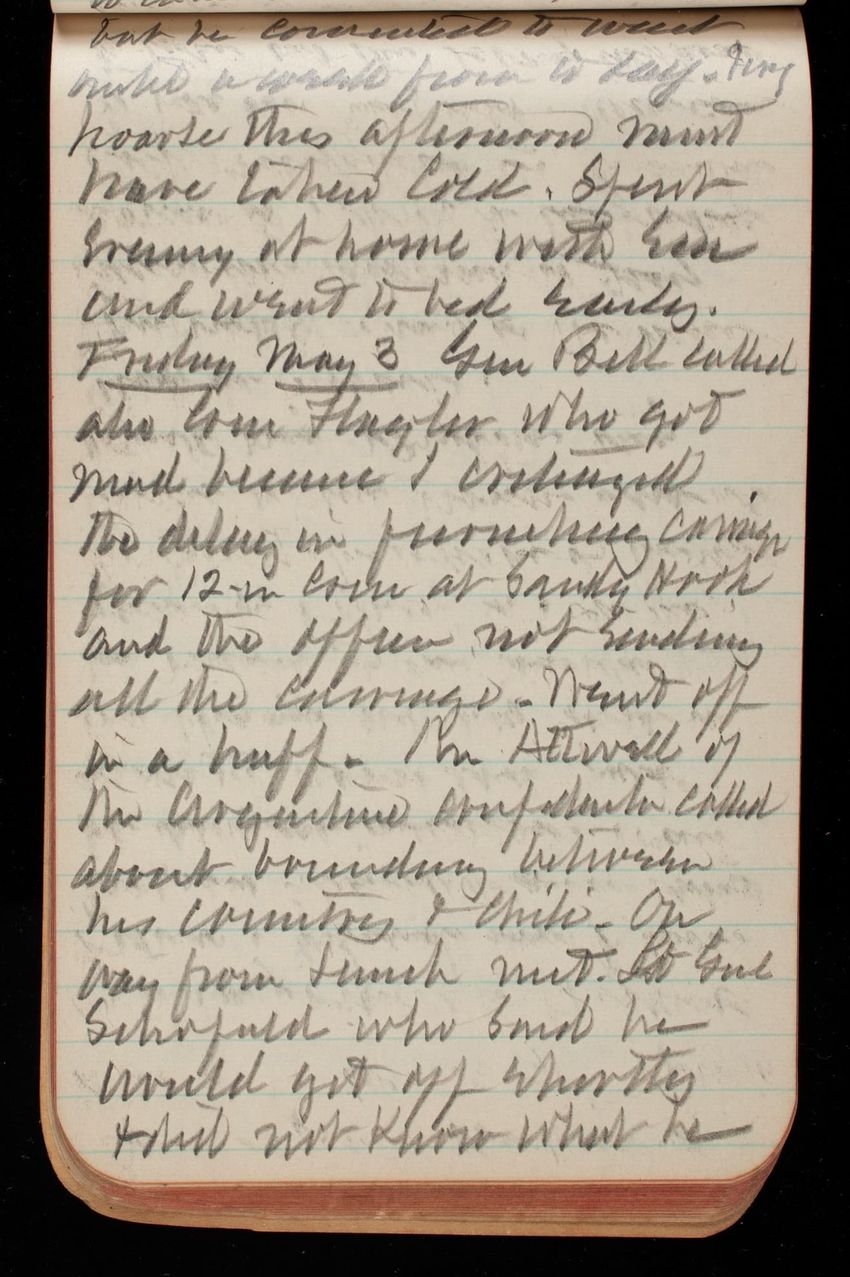 but he consented to wait
until a week from to day. Very
hoarse this afternoon must
have taken Cold. Spent
Evening at home with
and went to bed Early.
Friday May 3 Gen Bell called
also Com Flagler who got
mad because I
the delay in furnishing Carriage
for 12-in at Sandy Hook
and the officer not Sending
all the carriage - Went off
in a huff - Attwell of
the Argentine called
about boundary between
his country & Chili - On
way from Lunch met. Lt Genl
Schofield who Said he
would get off Shortly
& did not Know what he